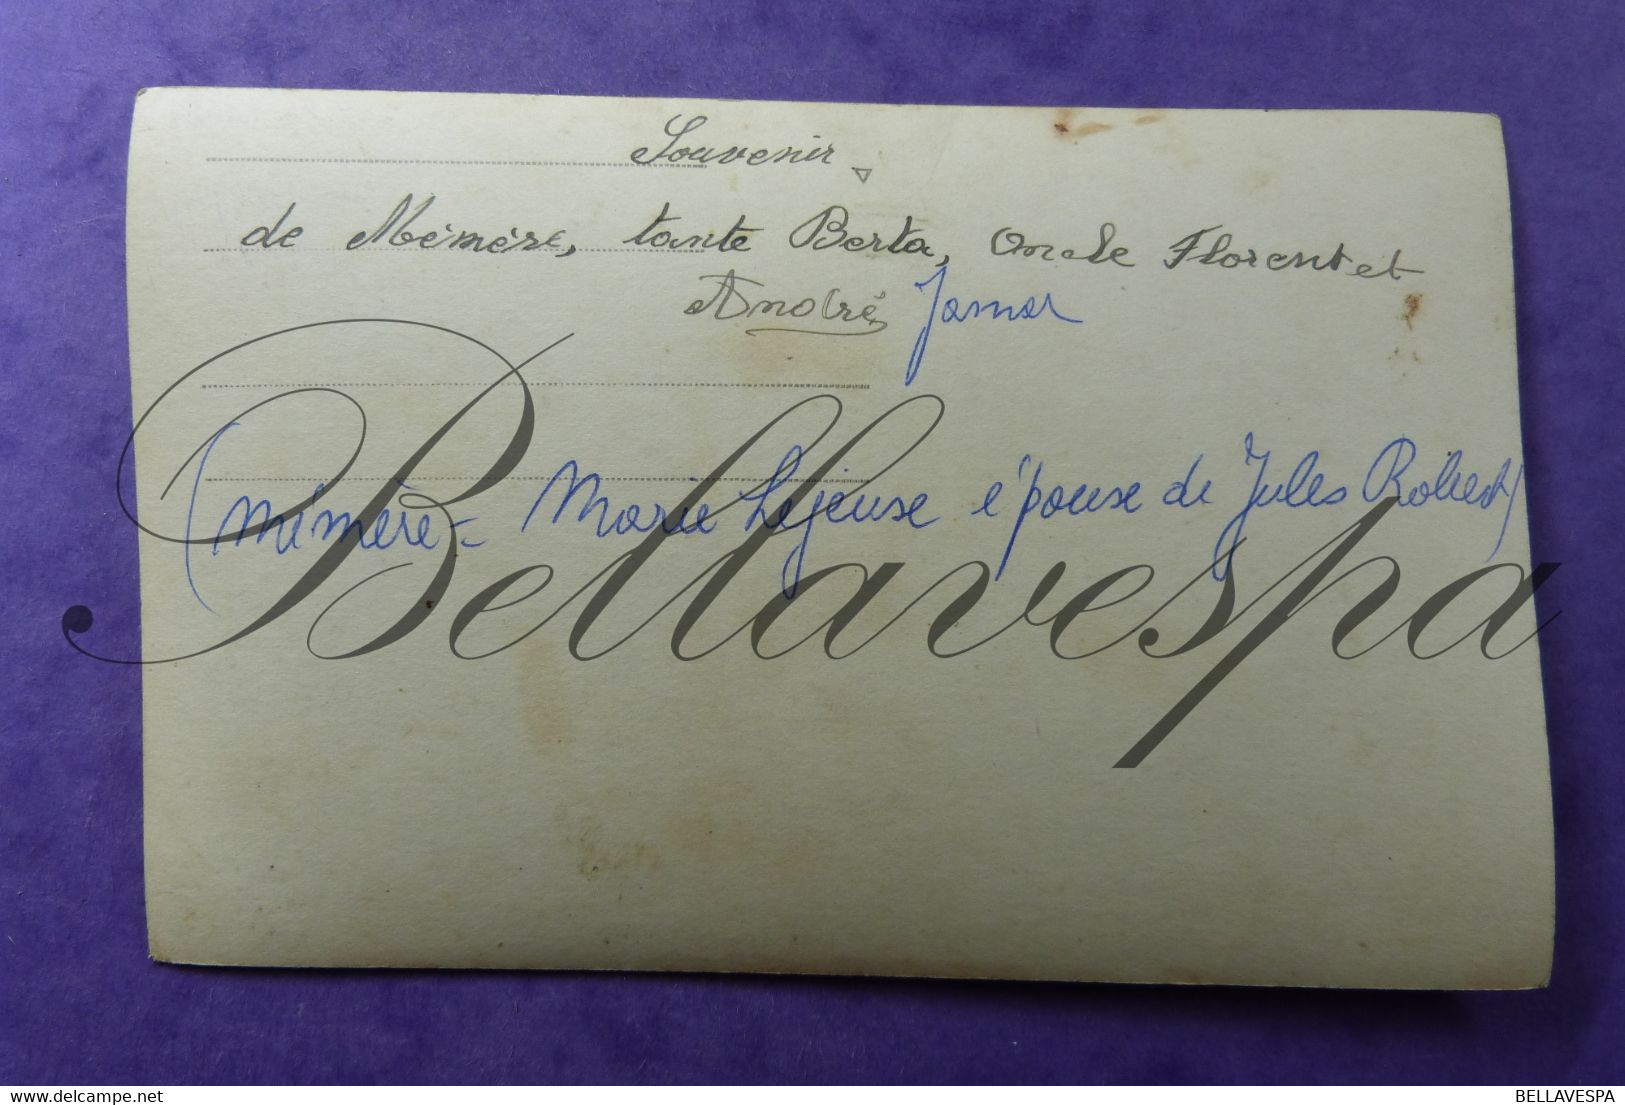 Souvenir
de Mémère, tante Berta, Oncle Florent et
André Jamar
(Mémère = Marie Lejeuse épouse de Jules Robert)
Bellavespa
delcampe.net
BELLAVESPA